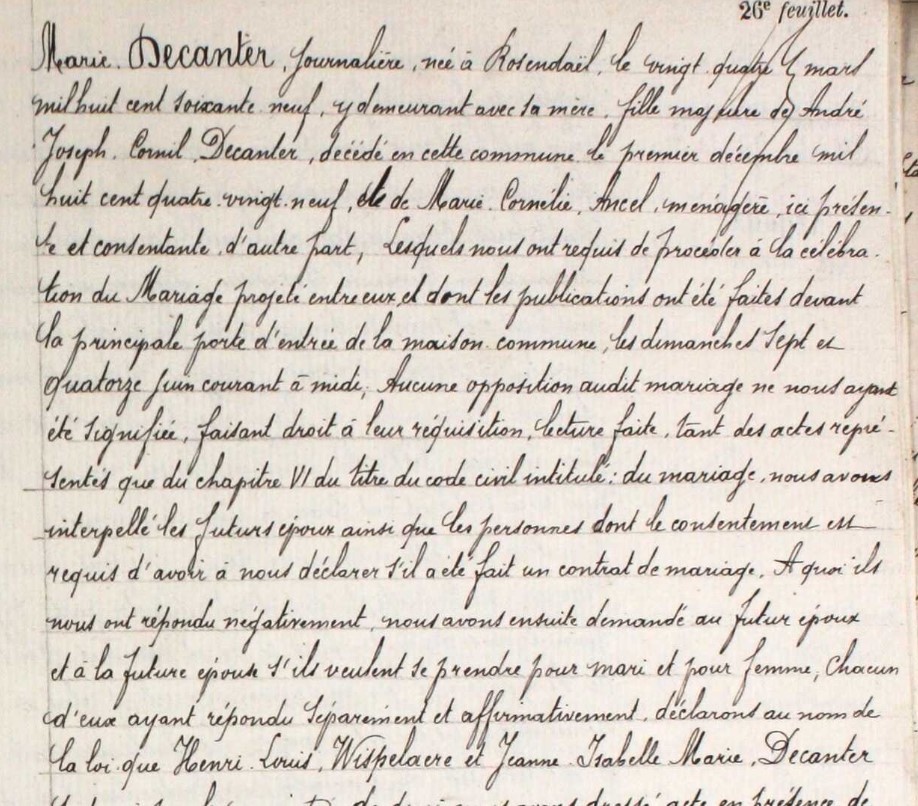 26e feuillet.
Marie Decanter, journalière, née à Rosendaël, le vingt quatre mars
mil huit cent soixante neuf, y demeurant avec sa mère, fille majeure de André
Joseph Cornil Decanter, décédé en cette commune le premier décembre mil
huit cent quatre vingt neuf, et de Marie Cornélie Ancel, ménagère, ici présen-
te et consentante, d'autre part, Lesquels nous ont requis de procéder à la célébra-
tion du Mariage projeté entre eux et dont les publications ont été faites devant
la principale porte d'entrée de la maison commune, les dimanches sept et
quatorze juin courant à midi; Aucune opposition audit mariage ne nous ayant
été signifiée, faisant droit à leur réquisition, lecture faite, tant des actes repré-
sentés que du chapitre VI du titre du code civil intitulé: du mariage, nous avons
interpellé les futurs époux ainsi que les personnes dont le consentement est
requis d'avoir à nous déclarer s'il a été fait un contrat de mariage. A quoi ils
nous ont répondu négativement, nous avons ensuite demandé au futur époux
et à la future épouse s'ils veulent se prendre pour mari et pour femme, chacun
d'eux ayant répondu séparément et affirmativement, déclarons au nom de
la loi que Henri Louis Wispelaere et Jeanne Isabelle Marie Decanter
acte en présence de